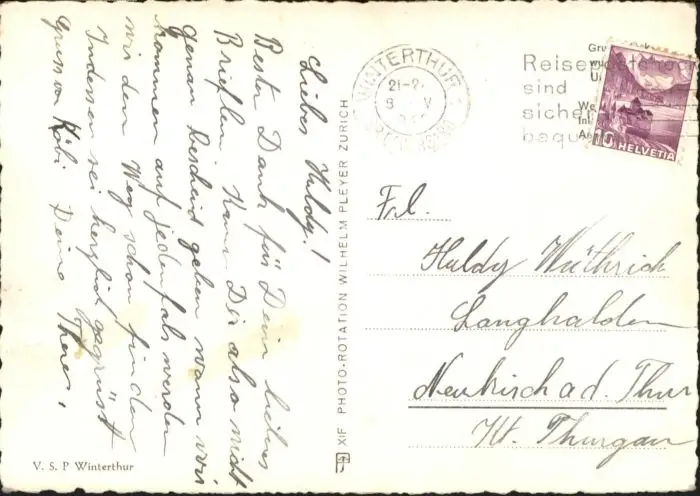 Liebes Huldy!
Besten Dank für Dein liebes
Brieflein. Kann Dir also nicht
genau Bescheid geben wann wir
kommen auf jedenfals werden
wir den Weg schon finden
Indessen sei herzlich gegrüsst
Gruss von Köbi Deine
V. S. P Winterthur
XIF PHOTO-ROTATION WILHELM PLEYER ZURICH
WINTERTHUR
21-2
8 V
Reisepostscheck
sind
sicher
bequem
10 HELVETIA
Frl.
Huldy Wüthrich
Langhalden
Neukirch a d. Thur
Kt. Thurgau